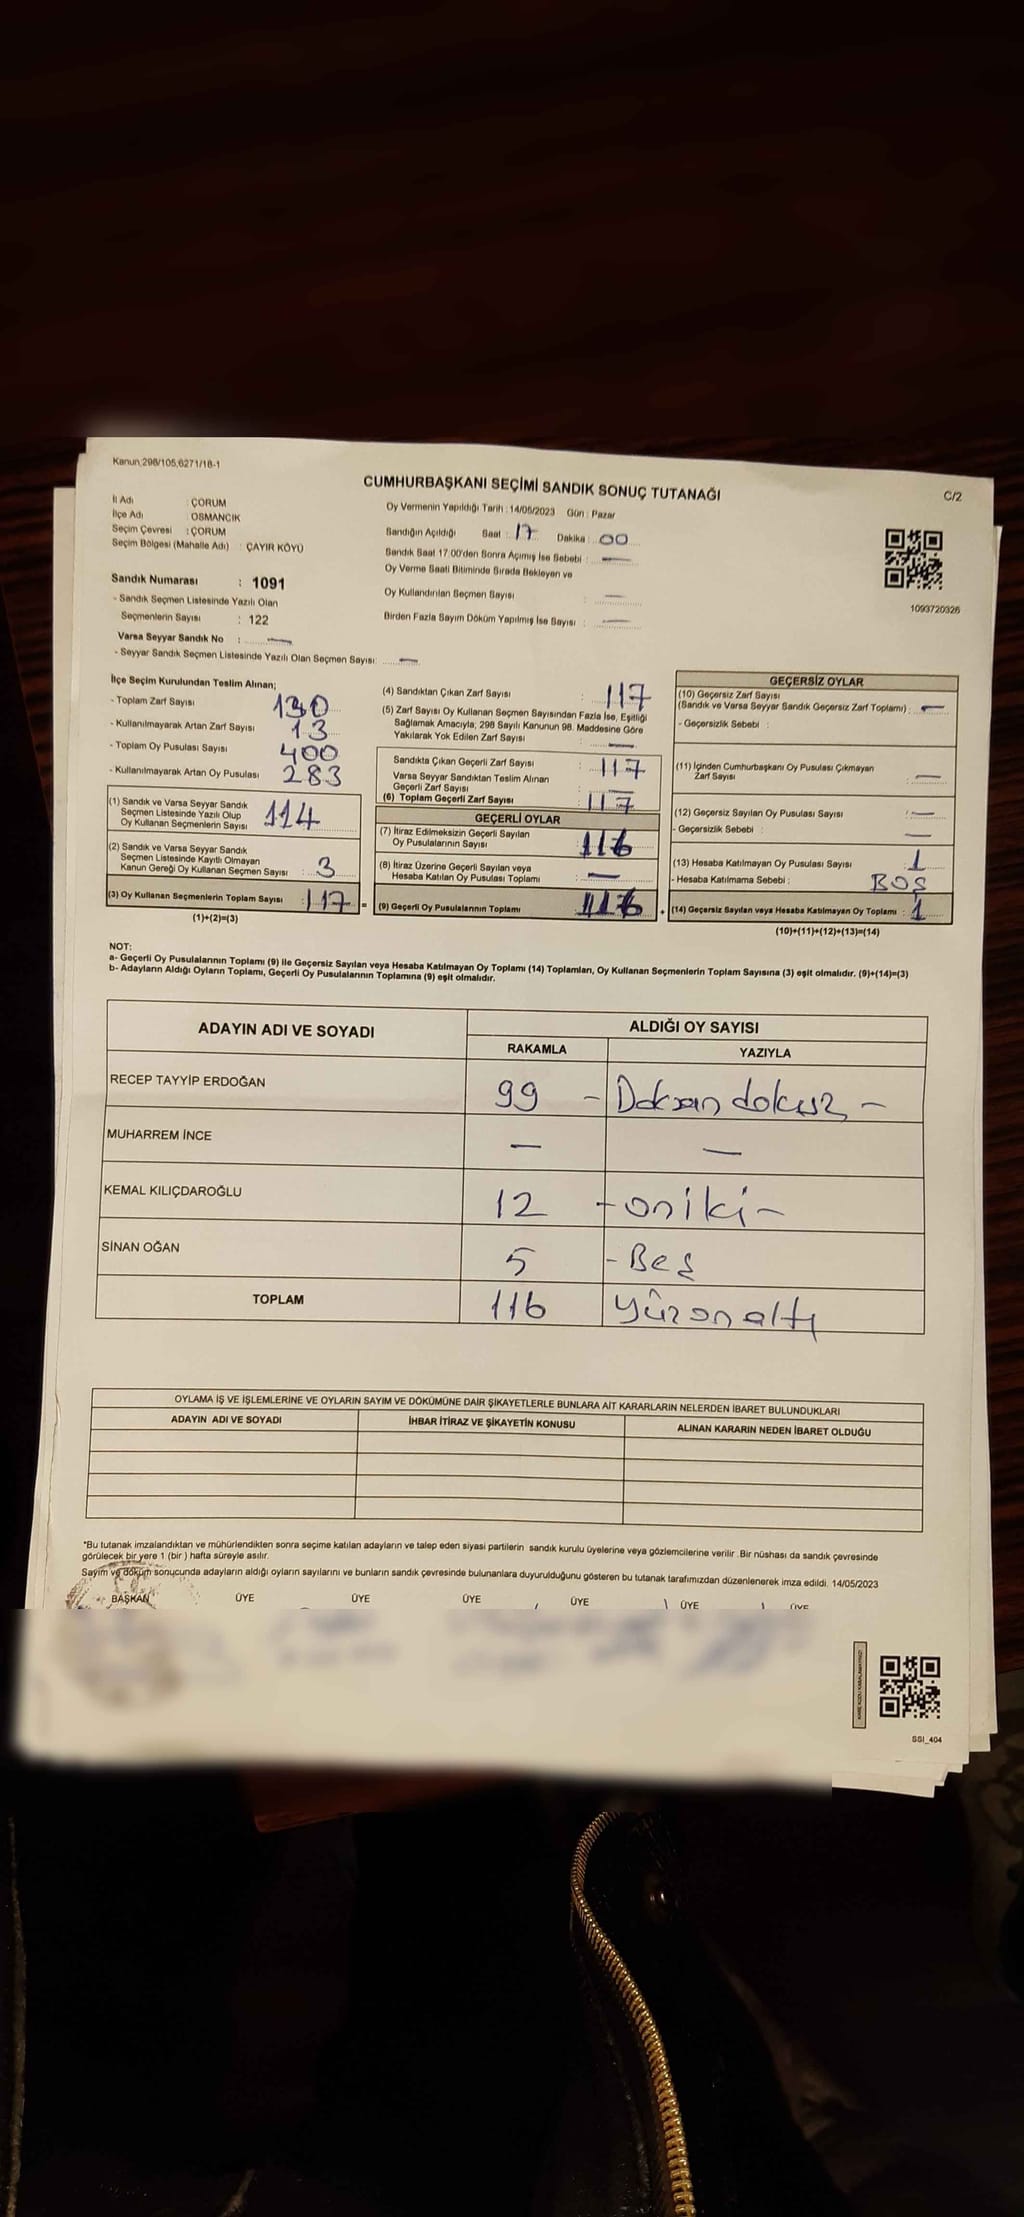 Kanun;298/105,6271/18-1
CUMHURBAŞKANI SEÇİMİ SANDIK SONUÇ TUTANAĞI
C/2
İl Adı : ÇORUM
İlçe Adı : OSMANCIK
Seçim Çevresi : ÇORUM
Seçim Bölgesi (Mahalle Adı) : ÇAYIR KÖYÜ
Oy Vermenin Yapıldığı Tarih : 14/05/2023 Gün : Pazar
Sandığın Açıldığı Saat : 17 Dakika : 00
Sandık Saat 17.00'den Sonra Açımış İse Sebebi : —
Oy Verme Saati Bitiminde Sırada Bekleyen ve
Oy Kullandırılan Seçmen Sayısı : —
Birden Fazla Sayım Döküm Yapılmış İse Sayısı : —
1093720326
Sandık Numarası : 1091
- Sandık Seçmen Listesinde Yazılı Olan
Seçmenlerin Sayısı : 122
Varsa Seyyar Sandık No : —
- Seyyar Sandık Seçmen Listesinde Yazılı Olan Seçmen Sayısı: —
İlçe Seçim Kurulundan Teslim Alınan;
- Toplam Zarf Sayısı 130
- Kullanılmayarak Artan Zarf Sayısı 13
- Toplam Oy Pusulası Sayısı 400
- Kullanılmayarak Artan Oy Pusulası 283
(1) Sandık ve Varsa Seyyar Sandık
Seçmen Listesinde Yazılı Olup
Oy Kullanan Seçmenlerin Sayısı 114
(2) Sandık ve Varsa Seyyar Sandık
Seçmen Listesinde Kayıtlı Olmayan
Kanun Gereği Oy Kullanan Seçmen Sayısı : 3
(3) Oy Kullanan Seçmenlerin Toplam Sayısı : 117 =
(1)+(2)=(3)
(4) Sandıktan Çıkan Zarf Sayısı : 117
(5) Zarf Sayısı Oy Kullanan Seçmen Sayısından Fazla İse, Eşitliği
Sağlamak Amacıyla; 298 Sayılı Kanunun 98. Maddesine Göre
Yakılarak Yok Edilen Zarf Sayısı : —
Sandıkta Çıkan Geçerli Zarf Sayısı : 117
Varsa Seyyar Sandıktan Teslim Alınan
Geçerli Zarf Sayısı
(6) Toplam Geçerli Zarf Sayısı : 117
GEÇERLİ OYLAR
(7) İtiraz Edilmeksizin Geçerli Sayılan
Oy Pusulalarının Sayısı : 116
(8) İtiraz Üzerine Geçerli Sayılan veya
Hesaba Katılan Oy Pusulası Toplamı : —
(9) Geçerli Oy Pusulalarının Toplamı 116 +
GEÇERSİZ OYLAR
(10) Geçersiz Zarf Sayısı
(Sandık ve Varsa Seyyar Sandık Geçersiz Zarf Toplamı) : —
- Geçersizlik Sebebi :
(11) İçinden Cumhurbaşkanı Oy Pusulası Çıkmayan
Zarf Sayısı : —
(12) Geçersiz Sayılan Oy Pusulası Sayısı : —
- Geçersizlik Sebebi : —
(13) Hesaba Katılmayan Oy Pusulası Sayısı : 1
- Hesaba Katılmama Sebebi : BOŞ
(14) Geçersiz Sayılan veya Hesaba Katılmayan Oy Toplamı : 1
(10)+(11)+(12)+(13)=(14)
NOT:
a- Geçerli Oy Pusulalarının Toplamı (9) ile Geçersiz Sayılan veya Hesaba Katılmayan Oy Toplamı (14) Toplamları, Oy Kullanan Seçmenlerin Toplam Sayısına (3) eşit olmalıdır. (9)+(14)=(3)
b- Adayların Aldığı Oyların Toplamı, Geçerli Oy Pusulalarının Toplamına (9) eşit olmalıdır.
ADAYIN ADI VE SOYADI
ALDIĞI OY SAYISI
RAKAMLA YAZIYLA
RECEP TAYYİP ERDOĞAN 99 - Doksan dokuz -
MUHARREM İNCE — —
KEMAL KILIÇDAROĞLU 12 - oniki -
SİNAN OĞAN 5 - Beş
TOPLAM 116 yüzonaltı
OYLAMA İŞ VE İŞLEMLERİNE VE OYLARIN SAYIM VE DÖKÜMÜNE DAİR ŞİKAYETLERLE BUNLARA AİT KARARLARIN NELERDEN İBARET BULUNDUKLARI
ADAYIN ADI VE SOYADI İHBAR İTİRAZ VE ŞİKAYETİN KONUSU ALINAN KARARIN NEDEN İBARET OLDUĞU
*Bu tutanak imzalandıktan ve mühürlendikten sonra seçime katılan adayların ve talep eden siyasi partilerin sandık kurulu üyelerine veya gözlemcilerine verilir. Bir nüshası da sandık çevresinde
görülecek bir yere 1 (bir) hafta süreyle asılır.
Sayım ve döküm sonucunda adayların aldığı oyların sayılarını ve bunların sandık çevresinde bulunanlara duyurulduğunu gösteren bu tutanak tarafımızdan düzenlenerek imza edildi. 14/05/2023
BAŞKAN ÜYE ÜYE ÜYE ÜYE ÜYE ÜYE
SSI_404